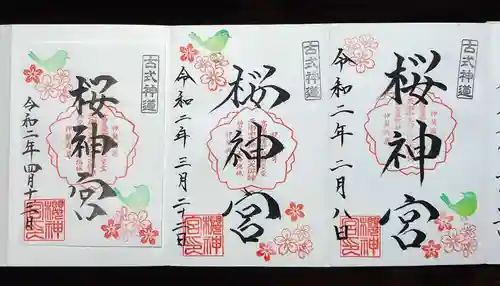 古式神道
桜神宮
令和二年二月八日
櫻神宮印
古式神道
桜神宮
令和二年三月二十二日
櫻神宮印
古式神道
桜神宮
令和二年四月十三日
櫻神宮印